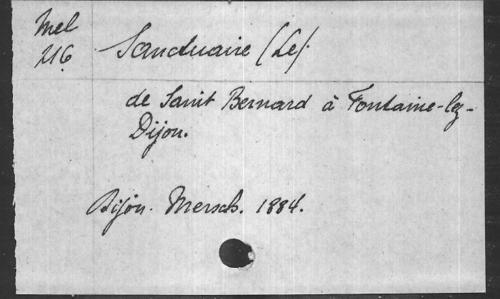 Mel
216
Sanctuaire (Le).
de Saint Bernard à Fontaine-lez-
Dijon.
Dijon. Mersch. 1884.